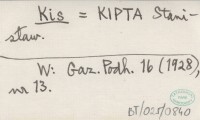 Kis = KIPTA Stani-
sław.
W: Gaz. Podh. 16 (1928),
nr 13.
BJ/025/0840